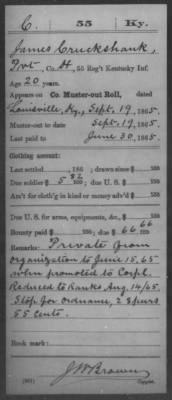 C. 55 Ky.
James Cruckshank,
Pvt, Co. H, 55 Reg't Kentucky Inf.
Age 20 years.
Appears on Co. Muster-out Roll, dated
Louisville, Ky., Sept. 19, 1865.
Muster-out to date Sept. 19, 1865.
Last paid to June 30, 1865.
Clothing account:
Last settled , 186 ; drawn since $ 100
Due soldier $ 5 82/100; due U. S. $ 100
Am't for cloth'g in kind or money adv'd $ 100
Due U. S. for arms, equipments, &c., $ 100
Bounty paid $ 100; due $ 66 66/100
Remarks: Private from
organization to June 15, 65
when promoted to Corpl.
Reduced to Ranks Aug. 14/65.
Stop for ordnance, 2 spurs
55 cents.
Book mark:
J W Brown
Copyist.